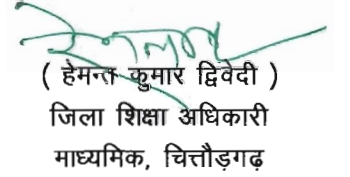 ( हेमन्त कुमार द्विवेदी )
जिला शिक्षा अधिकारी
माध्यमिक, चित्तौड़गढ़